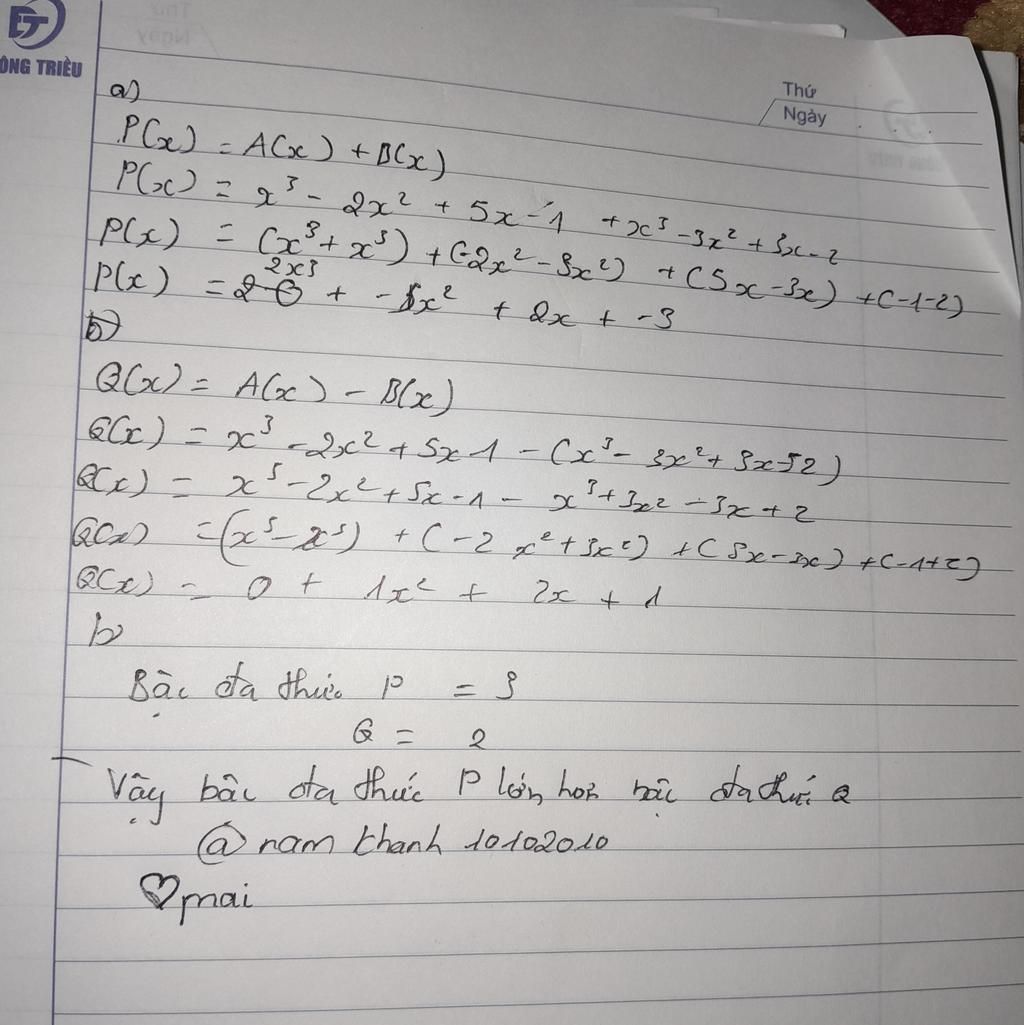 ÔNG TRIỀU
Thứ
Ngày
a)
P(x) = A(x) + B(x)
P(x) = x³ - 2x² + 5x - 1 + x³ - 3x² + 3x - 2
P(x) = (x³ + x³) + (-2x² - 3x²) + (5x - 3x) + (-1-2)
2x³
P(x) = + -5x² + 2x + -3
b)
Q(x) = A(x) - B(x)
Q(x) = x³ - 2x² + 5x 1 - (x³ - 3x² + 3x - 2)
Q(x) = x³ - 2x² + 5x - 1 - x³ + 3x² - 3x + 2
Q(x) = (x³ - x³) + (-2x² + 3x²) + (5x - 3x) + (-1+2)
Q(x) = 0 + 1x² + 2x + 1
b
Bậc đa thức P = 3
Q = 2
Vậy bậc đa thức P lớn hơn bậc đa thức Q
@ nam thanh 10102010
♡ mai